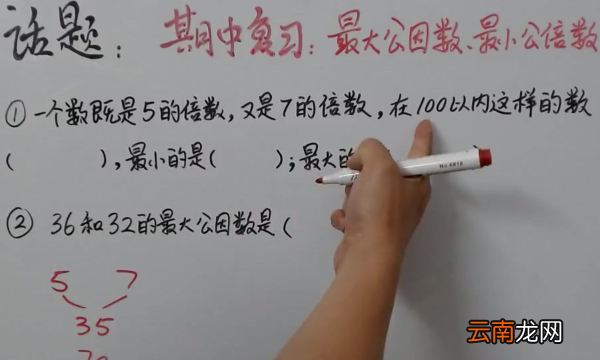 话题：期中复习：最大公因数、最小公倍数
① 一个数既是5的倍数，又是7的倍数，在100以内这样的数
(　　)，最小的是(　　)；最大的
② 36和32的最大公因数是(
5 7
35
70
No.6818
云南龙网